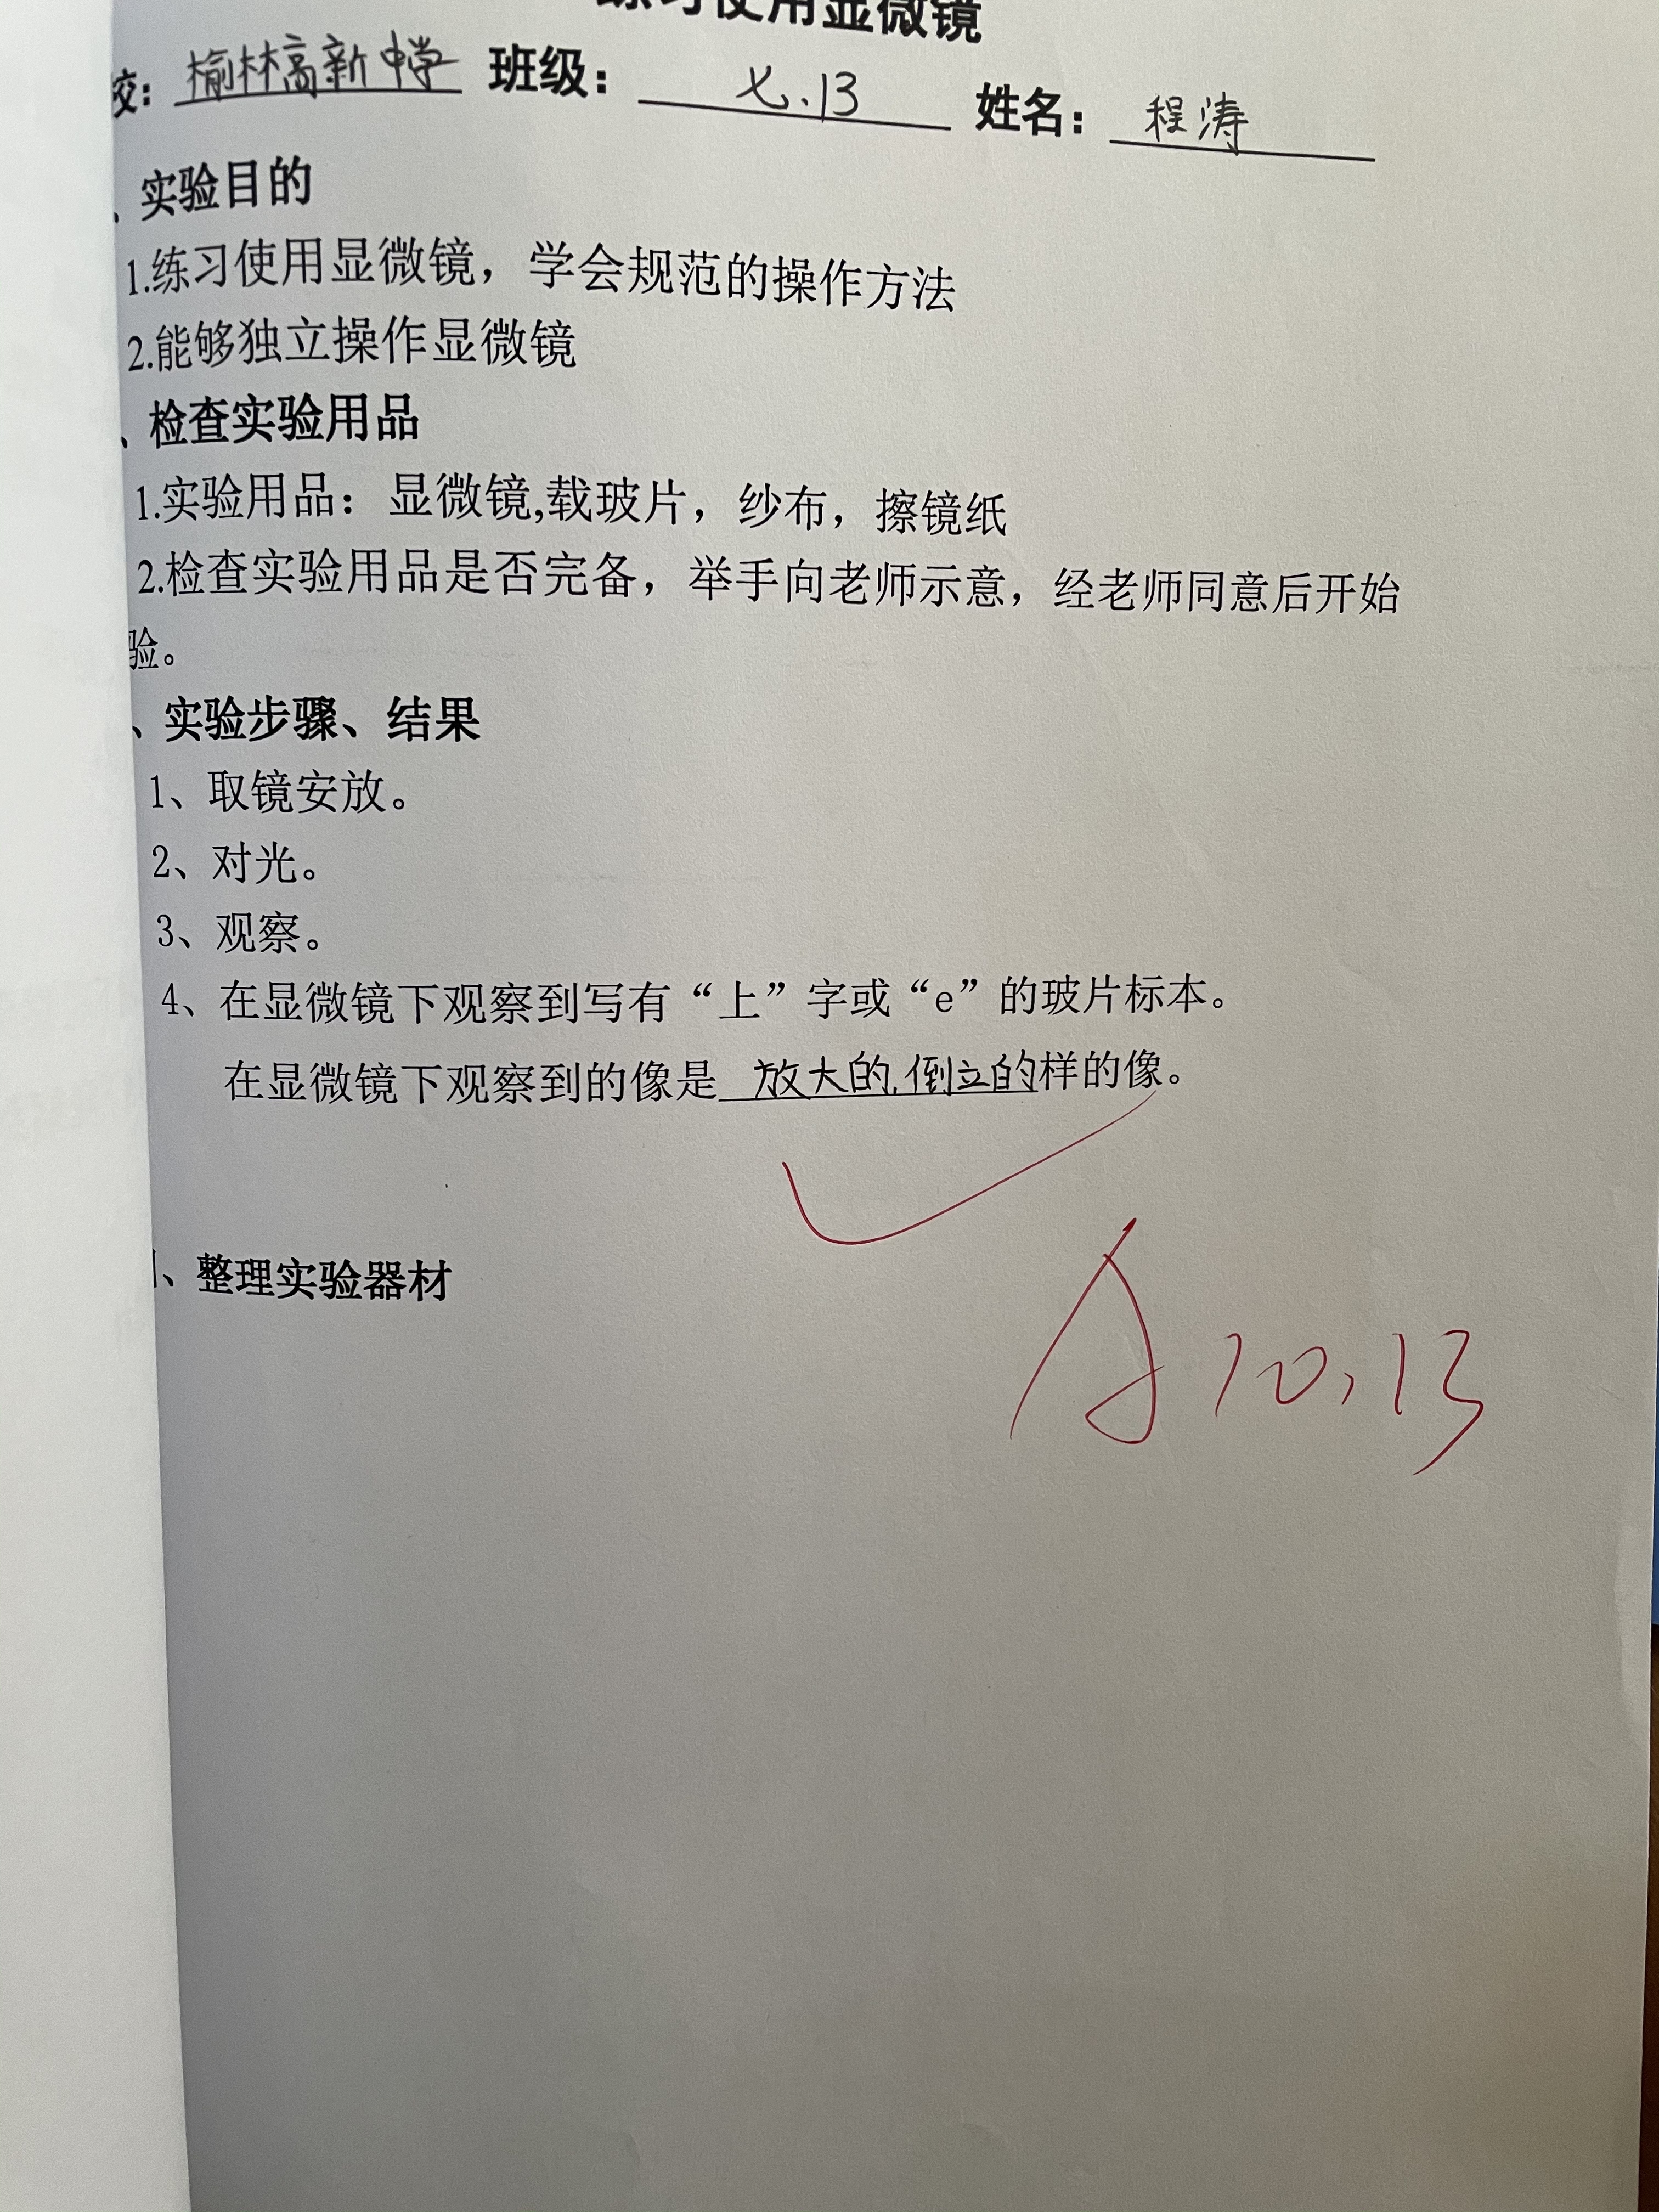 练习使用显微镜
校： 榆林高新中学 班级： 七.13 姓名： 程涛
、实验目的
1.练习使用显微镜，学会规范的操作方法
2.能够独立操作显微镜
、检查实验用品
1.实验用品：显微镜,载玻片，纱布，擦镜纸
2.检查实验用品是否完备，举手向老师示意，经老师同意后开始
验。
、实验步骤、结果
1、取镜安放。
2、对光。
3、观察。
4、在显微镜下观察到写有“上”字或“e”的玻片标本。
在显微镜下观察到的像是 放大的,倒立的样的像。
、整理实验器材
A 10.13